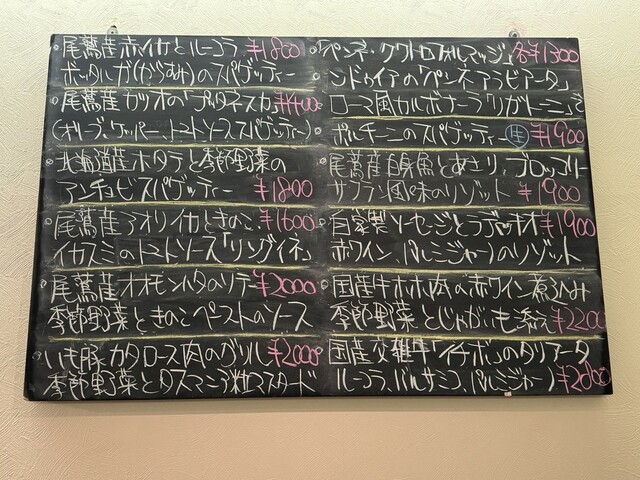 尾鷲産赤イカとルーコラ ¥1800
ボッタルガ(からすみ)のスパゲッティー
尾鷲産カツオの「プッタネスカ」¥1400
(オリーブ、ケッパー、トマトソーススパゲッティー)
北海道産ホタテと季節野菜の
アンチョビスパゲッティー ¥1800
尾鷲産アオリイカときのこ、¥1600
イカスミのトマトソース「リングイネ」
尾鷲産オオモンハタのソテー ¥2000
季節野菜ときのこペーストのソース
いも豚カタロース肉のグリル ¥2000
季節野菜とタスマニア粒マスタード
「ペンネ・クワトロフォルマッジ」各¥1300
ンドゥイアの「ペンネアラビアータ」
ローマ風カルボナーラ「リガトーニ」で
ポルチーニのスパゲッティー 生 ¥1900
尾鷲産白身魚とあさり、ブロッコリー
サフラン風味のリゾット ¥1900
自家製ソーセージとラディッキオ ¥1900
(赤ワイン、パルミジャーノ)のリゾット
国産牛ホホ肉の赤ワイン煮込み
季節野菜とじゃがいも添え ¥2200
国産交雑牛「イチボ」のタリアータ
(ルーコラ、バルサミコ、パルミジャーノ) ¥2800